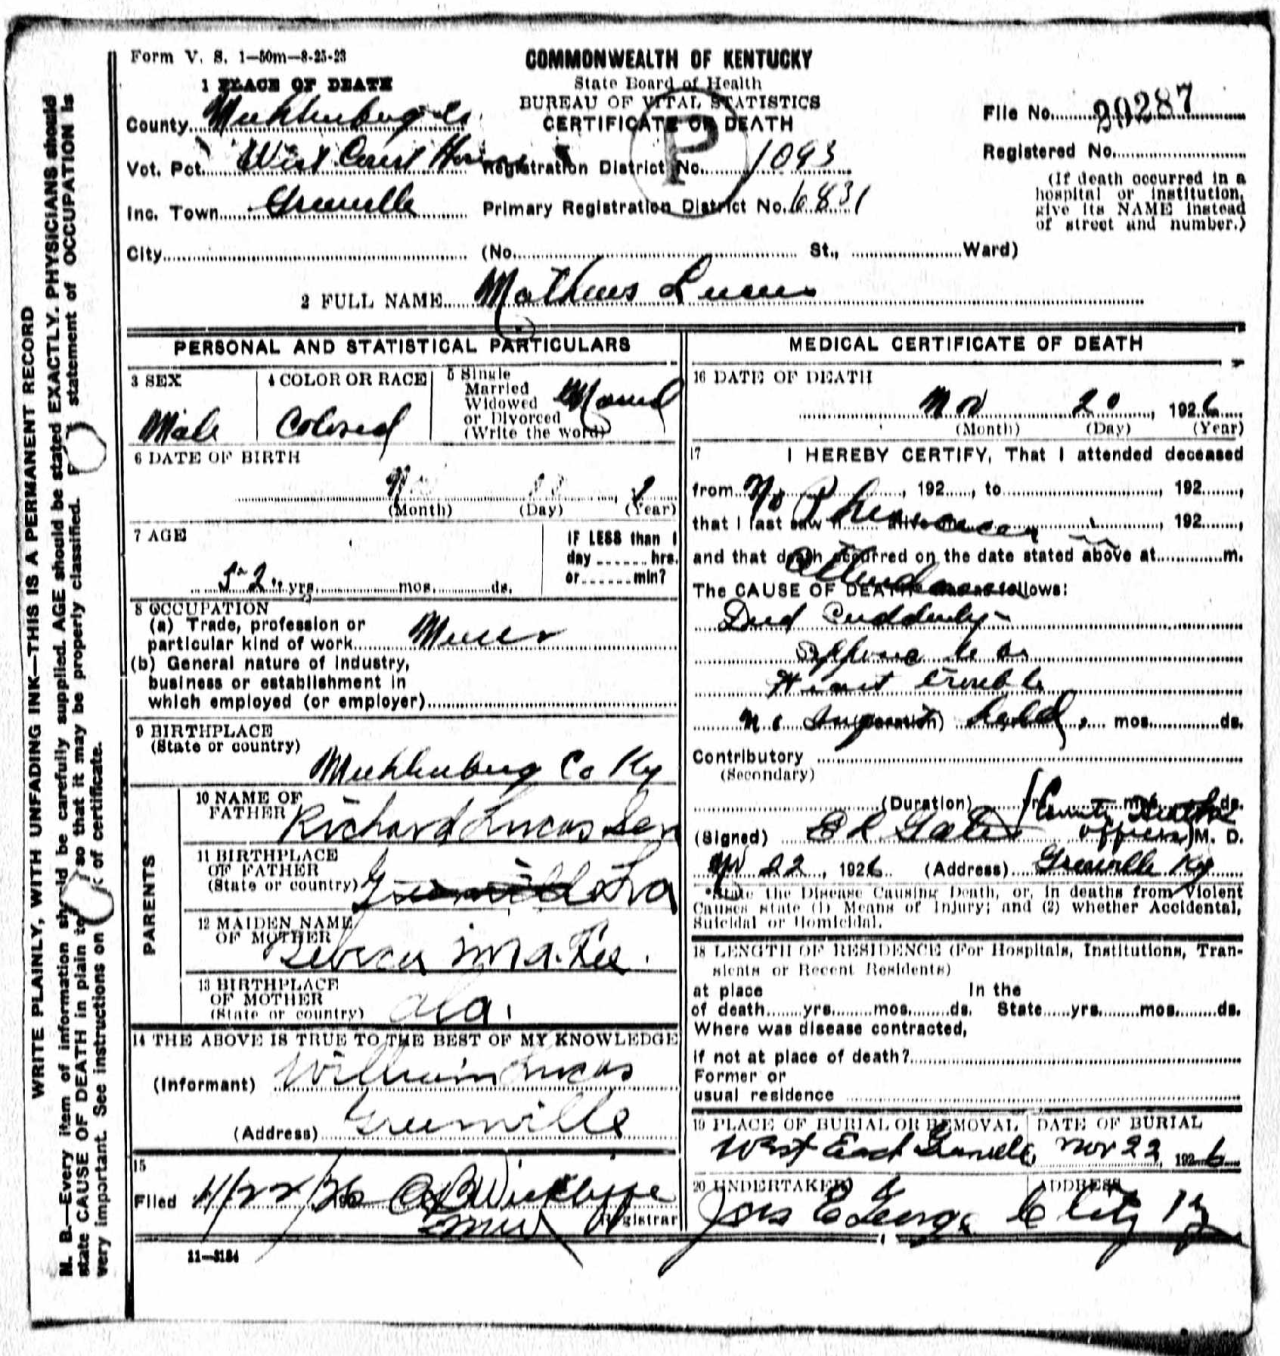 Form V. S. 1—50m—8-25-23
COMMONWEALTH OF KENTUCKY
State Board of Health
BUREAU OF VITAL STATISTICS
CERTIFICATE OF DEATH
P
1 PLACE OF DEATH
County Muhlenburg Co.
Vot. Pct. West Court House
Inc. Town Greenville
City
Registration District No. 1093
Primary Registration District No. 6831
(No. St., Ward)
File No. 20287
Registered No.
(If death occurred in a
hospital or institution,
give its NAME instead
of street and number.)
2 FULL NAME Mathews Lucus
PERSONAL AND STATISTICAL PARTICULARS
3 SEX
Male
4 COLOR OR RACE
Colored
5 Single
Married
Widowed
or Divorced
(Write the word)
Married
6 DATE OF BIRTH
(Month) (Day) (Year)
7 AGE
52 yrs. mos. ds.
IF LESS than 1
day hrs.
or min?
8 OCCUPATION
(a) Trade, profession or
particular kind of work Miner
(b) General nature of industry,
business or establishment in
which employed (or employer)
9 BIRTHPLACE
(State or country)
Muhlenburg Co Ky
PARENTS
10 NAME OF
FATHER Richard Lucas Sen
11 BIRTHPLACE
OF FATHER
(State or country)
12 MAIDEN NAME
OF MOTHER
13 BIRTHPLACE
OF MOTHER
(State or country) Ala.
14 THE ABOVE IS TRUE TO THE BEST OF MY KNOWLEDGE
(Informant) William Lucas
(Address) Greenville
15
Filed 11/22/26
Registrar
11—3184
MEDICAL CERTIFICATE OF DEATH
16 DATE OF DEATH
Nov 20, 1926
(Month) (Day) (Year)
17 I HEREBY CERTIFY, That I attended deceased
from No Physician in, 192, to, 192,
that I last saw h alive on, 192,
and that death occurred on the date stated above at m.
Attendance
The CAUSE OF DEATH was as follows:
Died Suddenly-
Suppose to be
Heart trouble
No Inquest held. (Duration) mos. ds.
Contributory
(Secondary)
(Duration) yrs. mos. ds.
(Signed) County Health Officer M. D.
Nov 22, 1926 (Address) Greenville Ky
*State the Disease Causing Death, or, in deaths from Violent
Causes state (1) Means of Injury; and (2) whether Accidental,
Suicidal or Homicidal.
18 LENGTH OF RESIDENCE (For Hospitals, Institutions, Tran-
sients or Recent Residents)
at place In the
of death yrs. mos. ds. State yrs. mos. ds.
Where was disease contracted,
if not at place of death?
Former or
usual residence
19 PLACE OF BURIAL OR REMOVAL
West End Greenville
DATE OF BURIAL
Nov 22, 1926
20 UNDERTAKER
George
ADDRESS
C City Ky
WRITE PLAINLY, WITH UNFADING INK—THIS IS A PERMANENT RECORD
N. B.—Every item of information should be carefully supplied. AGE should be stated EXACTLY. PHYSICIANS should
state CAUSE OF DEATH in plain so that it may be properly classified. statement of OCCUPATION is
very important. See instructions on of certificate.